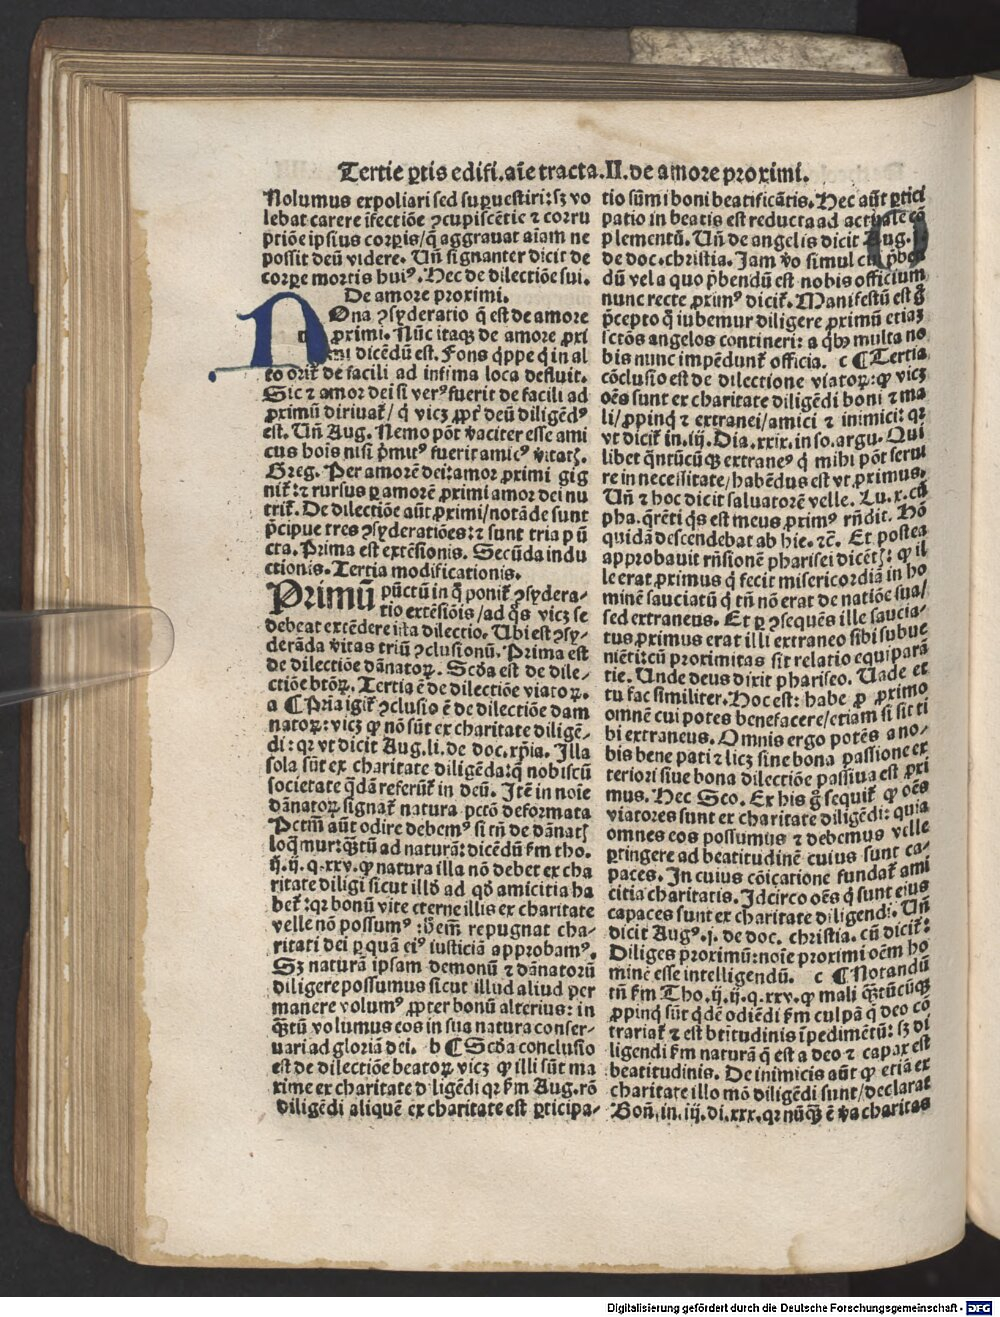 Tertie ꝑtis edifi. aīe tracta. II. de amore proximi.
Nolumus expoliari sed suꝑuestiri: sꝫ vo
lebat carere īfectiōe ꝯcupiscētie ⁊ corru
ptiōe ipsius corꝑis/ q̄ aggrauat aīam ne
possit deū videre. Uñ signanter dicit de
corꝑe mortis huiꝰ. Hec de dilectiōe sui.
De amore proximi.
Nona ꝯsyderatio q̄ est de amore
ꝓximi. Nūc itaqꝫ de amore ꝓxi
mi dicēdū est. Fons q̄ppe q̄ in al
to orit̄ de facili ad infima loca defluit.
Sic ⁊ amor dei si verꝰ fuerit de facili ad
ꝓximū diriuat̄/ q̄ vicꝫ ꝓpt̄ deū diligēdꝰ
est. Uñ Aug. Nemo pōt v̄aciter esse ami
cus hoīs nisi p̄mitꝰ fuerit amicꝰ v̄itatꝭ.
Greg. Per amorē dei: amor ꝓximi gig
nit̄: ⁊ rursus ꝑ amorē ꝓximi amor dei nu
trit̄. De dilectiōe aūt ꝓximi/ notāde sunt
p̄cipue tres ꝯsyderatiōes: ⁊ sunt tria pū
cta. Prima est extēsionis. Secūda indu
ctionis. Tertia modificationis.
Primū pūctū in q̄ ponit̄ ꝯsydera-
tio extēsiōis/ ad q̄s vicꝫ se
debeat extēdere ista dilectio. Ubi est ꝯsy-
derāda v̄itas triū ꝯclusionū. Prima est
de dilectiōe dānatoꝝ. Scd̄a est de dile-
ctiōe btōꝝ. Tertia ē de dilectiōe viatoꝝ.
a ¶ Pria igit̄ ꝯclusio ē de dilectiōe dam
natoꝝ: vicꝫ ꝙ nō sūt ex charitate diligē-
di: qꝛ vt dicit Aug. li. de doc. xp̄ia. Illa
sola sūt ex charitate diligēda: q̄ nobiscū
societate q̄dā referūt̄ in deū. Itē in noīe
dānatoꝝ signat̄ natura pctō deformata
Pctm̄ aūt odire debemꝰ si tñ de dānatꝭ
loq̄mur: qꝫtū ad naturā: dicēdū ẜm tho.
ij. ij. q. xxv. ꝙ natura illa nō debet ex cha
ritate diligi sicut illd̄ ad qd̄ amicitia ha
bet̄: qꝛ bonū vite eterne illis ex charitate
velle nō possumꝰ: h̄ em̄ repugnat cha-
ritati dei ꝑ quā eiꝰ iusticiā approbamꝰ.
Sꝫ naturā ipsam demonū ⁊ dānatorū
diligere possumus sicut illud aliud per
manere volumꝰ ꝓpter bonū alterius: in
qꝫtū volumus eos in sua natura conser-
uari ad gloriā dei. b ¶ Scd̄a conclusio
est de dilectiōe beatoꝝ vicꝫ ꝙ illi sūt ma
xime ex charitate d ligēdi qꝛ ẜm Aug. rō
diligēdi aliquē ex charitate est ꝑticipa-
tio sūmi boni beatificātis. Hec aūt ꝑtici
patio in beatis est reducta ad actuale cō
plementū. Uñ de angelis dicit Aug. j.
de doc. christia. Jam v̄o simul cū p̄bē
dū vel a quo p̄bendū est nobis officium
nunc recte ꝓximꝰ dicit̄. Manifestū est ḡ
p̄cepto q̄ iubemur diligere ꝓximū etiaꝫ
sctōs angelos contineri: a qͥbꝫ multa no
bis nunc impēdunt̄ officia. c ¶ Tertia
cōclusio est de dilectione viatoꝝ: ꝙ vicꝫ
oēs sunt ex charitate diligēdi boni ⁊ ma
li/ ꝓpinq̄ ⁊ extranei/ amici ⁊ inimici: qꝛ
vt dicit̄ in. iij. Dia. xxix. in so. argu. Qui
libet q̄ntūcūqꝫ extraneꝰ q̄ mihi pōt serui
re in necessitate/ habēdus est vt ꝓximus.
Uñ ⁊ hoc dicit saluatorē velle. Lu. x. cū
pha. q̄rēti q̄s est meus ꝓximꝰ rn̄dit. Hō
quidā descendebat ab hie. ⁊c. Et postea
approbauit rn̄sionē pharisei dicētꝭ: ꝙ il
le erat ꝓximus q̄ fecit misericordiā in ho
minē sauciatū q̄ tñ nō erat de natiōe sua/
sed extraneus. Et ꝑ ꝯsequēs ille saucia-
tus ꝓximus erat illi extraneo sibi subue
niēti: cū proximitas sit relatio equiparā
tie. Unde deus dixit phariseo. Uade et
tu fac similiter. Hoc est: habe ꝓ ꝓximo
omnē cui potes benefacere/ etiam si sit ti
bi extraneus. Omnis ergo potēs a no-
bis bene pati ⁊ licꝫ sine bona passione ex
teriori siue bona dilectiōe passiua est ꝓxi
mus. Hec Sco. Ex his ḡ sequit̄ ꝙ oēs
viatores sunt ex charitate diligēdi: quia
omnes eos possumus ⁊ debemus velle
ꝑtingere ad beatitudinē cuius sunt ca-
paces. In cuius cōicatione fundat̄ ami
citia charitatis. Idcirco oēs q̄ sunt eius
capaces sunt ex charitate diligendi. Uñ
dicit Augꝰ. j. de doc. christia. cū dicit̄:
Diliges proximū: noīe proximi oēm ho
minē esse intelligendū. c ¶ Notandū
tñ ẜm Tho. ij. ij. q. xxv. ꝙ mali qꝫtūcūqꝫ
ꝓpinq̄ sūt q̄dē odiēdi ẜm culpā q̄ deo cō
trariat̄ ⁊ est btitudinis īpedimētū: sꝫ di
ligendi ẜm naturā q̄ est a deo ⁊ capax est
beatitudinis. De inimicis aūt ꝙ etiā ex
charitate illo mō diligēdi sunt/ declarat
Boñ. in. iij. di. xxx. qꝛ nūqꝫ ē v̄a charitas
Digitalisierung gefördert durch die Deutsche Forschungsgemeinschaft - DFG